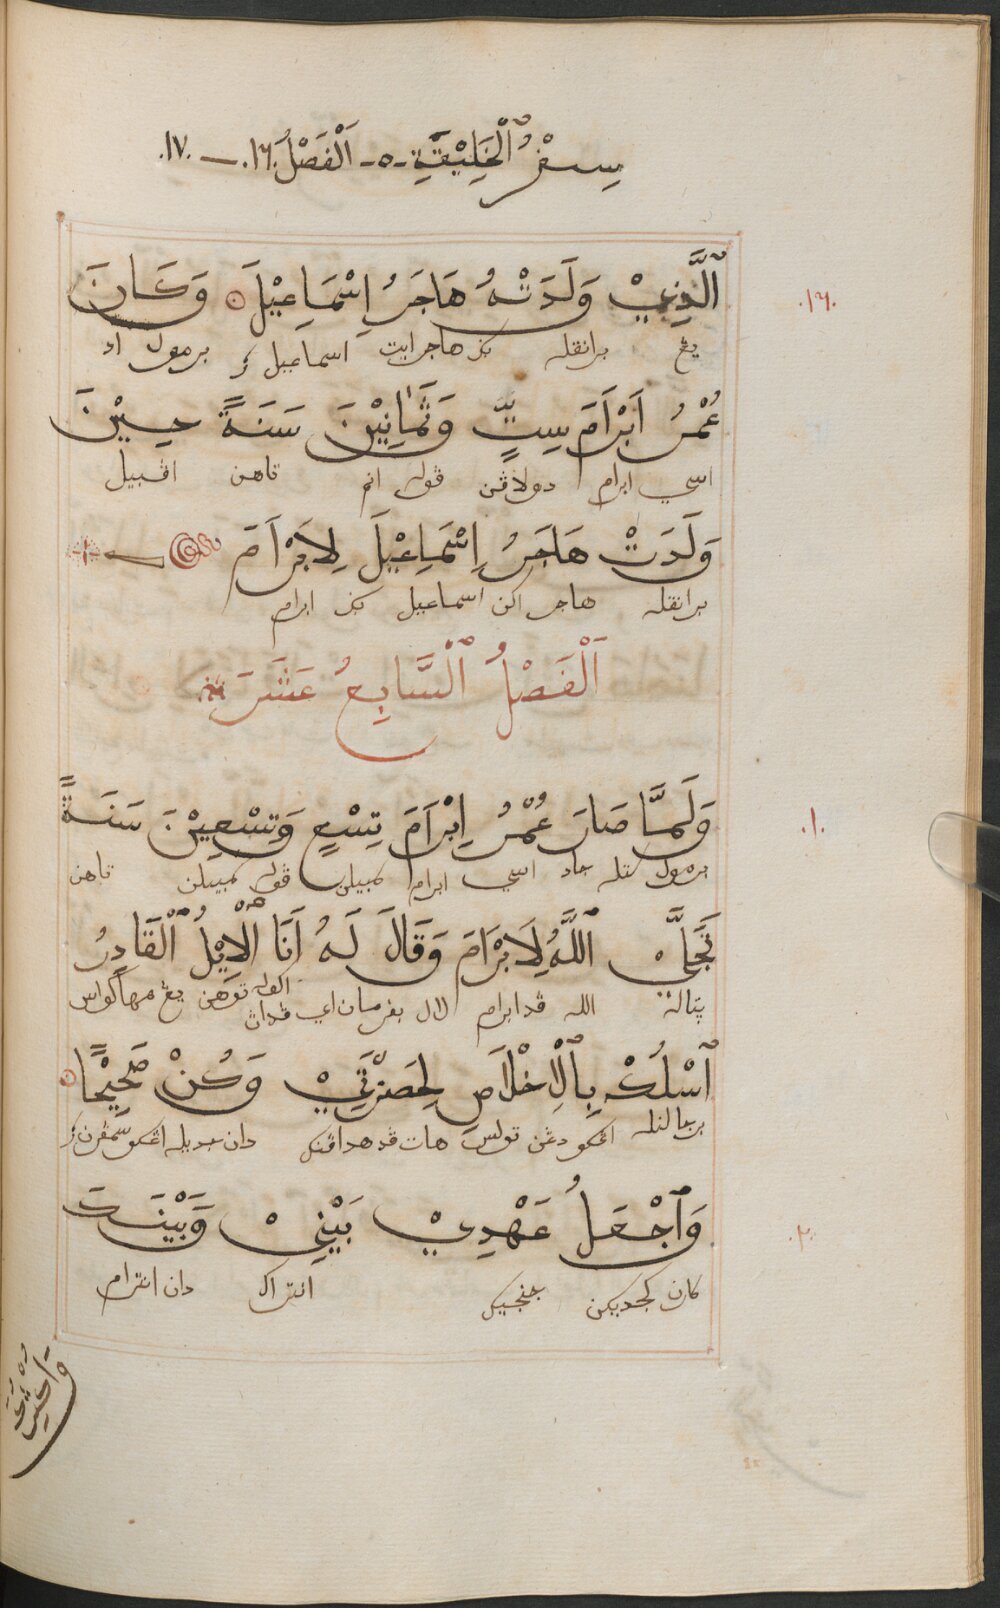 سِفْرُ ٱلْخَلِيْقَةِ -٥- اَلْفَصْلُ .١٦. — .١٧.
ٱلَّذِيْ وَلَدَتْهُ هَاجَرُ اِسْمَاعِيْلَ وَكَانَ
.١٦.
يڠ برانقله هاجر ايت اسماعيل برمول اد
عُمْرُ اَبْرَامَ سِتٍّ وَثَمَانِيْنَ سَنَةً حِيْنَ
اسي ابرام دولاڤن ڤوله انم تاهن اڤبيل
وَلَدَتْ هَاجَرُ اِسْمَاعِيْلَ لِاَبْرَامَ
برانقله هاجر اكن اسماعيل ابرام
اَلْفَصْلُ ٱلسَّابِعُ عَشَرَ
وَلَمَّا صَارَ عُمْرُ اِبْرَامَ تِسْعٍ وَتِسْعِيْنَ سَنَةً
.١.
برمول ستله جاد اسي ابرام سمبيلن ڤوله سمبيلن تاهن
تَجَلَّيْ ٱللَّهُ لِاَبْرَامَ وَقَالَ لَهُ اَنَا ٱلْاِيْلُ ٱلْقَادِرُ
الله ڤد ابرام لال بفرمان اي ڤداڽ اكوله توهن يڠ مهاكواس
ٱسْلُكْ بِٱلْاِخْلَاصِ لِحَضْرَتِيْ وَكُنْ صَحِيْحًا
برجالنله اڠكو دڠن تولس هات ڤد هداڤنكل دان جديله اڠكو سمڤرن
وَٱجْعَلُ عَهْدِيْ بَيْنِيْ وَبَيْنَكَ
.٢.
كان كجديكن جنجيكل انتراك دان انترام
وَاُكَثِّرُكَ